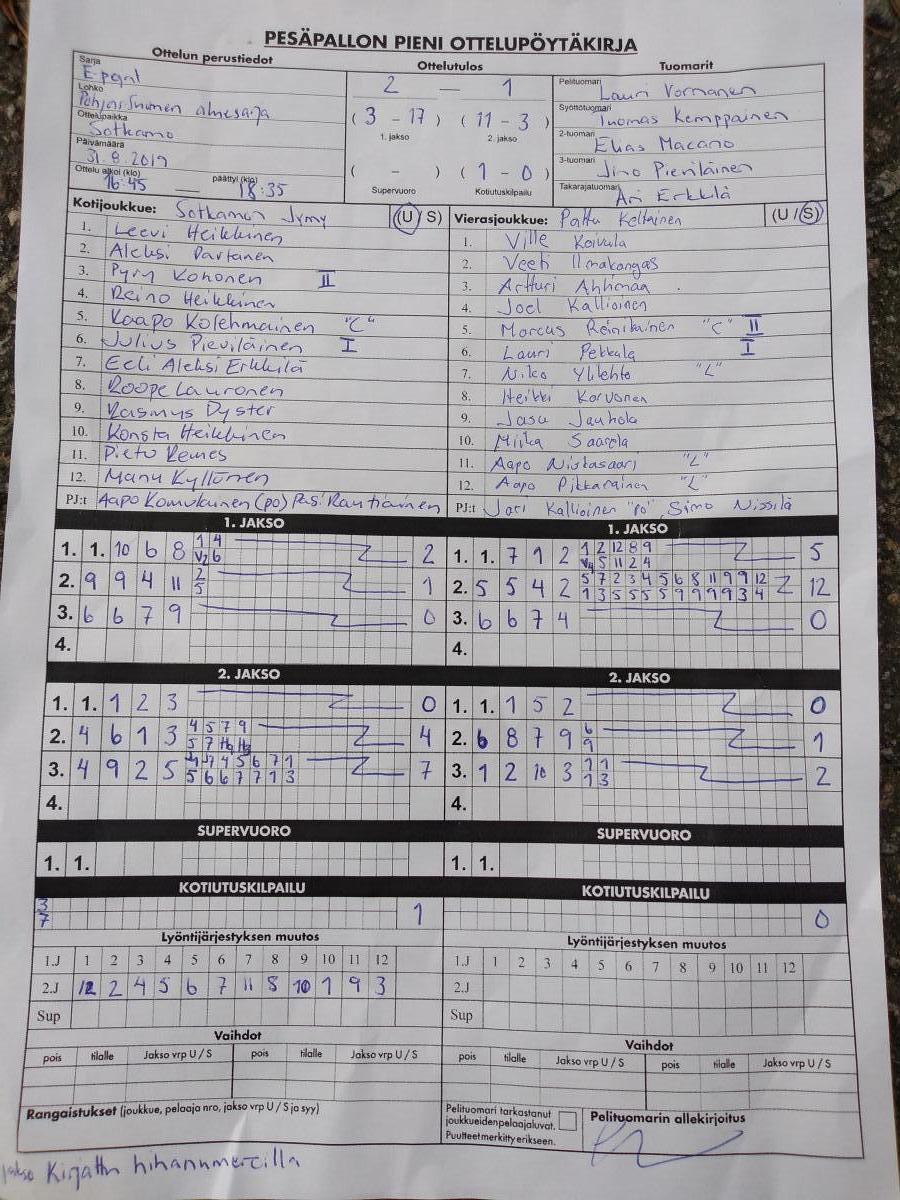 PESÄPALLON PIENI OTTELUPÖYTÄKIRJA
Ottelun perustiedot
Ottelutulos
Tuomarit
Sarja
Lohko
Pohjois Suomen aluesarja
Ottelupaikka
Sotkamo
Päivämäärä
31.8.2019
Ottelu alkoi (klo)
16:45 — päättyi (klo) 18:35
2 — 1
( 3 - 17 ) ( 11 - 3 )
1. jakso 2. jakso
( - ) ( 1 - 0 )
Supervuoro Kotiutuskilpailu
Pelituomari Lauri Vornanen
Syöttötuomari Tuomas Kemppainen
2-tuomari Elias Macano
3-tuomari Jimo Pieviläinen
Takarajatuomari Ari Erkkilä
Kotijoukkue: Sotkamon Jymy (U/S)
1. Leevi Heikkinen
2. Aleksi Partanen
3. Pyry Kohonen II
4. Reino Heikkinen
5. Kaapo Kolehmainen "C"
6. Julius Pieviläinen I
7. Eeli Aleksi Erkkilä
8. Roope Lauronen
9. Rasmus Dyster
10. Konsta Heikkinen
11. Pietu Remes
12. Manu Kyllönen
PJ:t Aapo Komulainen (po) Pasi Rautiainen
Vierasjoukkue: Pattu Keltainen (U/S)
1. Ville Koivula
2. Veeti Ilmakangas
3. Artturi Ahhmaa
4. Joel Kallioinen
5. Marcus Reinikainen "C" II
6. Lauri Pekkala I
7. Niko Ylilehto "L"
8. Heikki Korvonen
9. Jasu Jauhola
10. Miika Saarela
11. Aapo Niskasaari "L"
12. Aapo Pikkarainen "L"
PJ:t Jari Kallioinen "PO", Simo Nissilä
1. JAKSO
1. 1. 10 6 8 1 4 2
V2 6
2. 9 9 4 11 2 1
5
3. 6 6 7 9 0
4.
1. JAKSO
1. 1. 7 1 2 1 2 12 8 9 5
V4 5 11 2 4
2. 5 5 4 2 5 7 2 3 4 5 6 8 11 9 9 12 12
1 3 5 5 5 5 9 9 9 9 3 4
3. 6 6 7 4 0
4.
2. JAKSO
1. 1. 1 2 3 0
2. 4 6 1 3 4 5 7 9 4
5 7
3. 4 9 2 5 4 4 4 5 6 7 1 7
5 6 6 7 7 1 3
4.
2. JAKSO
1. 1. 1 5 2 0
2. 6 8 7 9 6 1
9
3. 1 2 10 3 1 1 2
1 3
4.
SUPERVUORO
1. 1.
SUPERVUORO
1. 1.
KOTIUTUSKILPAILU
3
7 1
KOTIUTUSKILPAILU
0
Lyöntijärjestyksen muutos
1.J 1 2 3 4 5 6 7 8 9 10 11 12
2.J 12 2 4 5 6 7 11 8 10 1 9 3
Sup
Lyöntijärjestyksen muutos
1.J 1 2 3 4 5 6 7 8 9 10 11 12
2.J
Sup
Vaihdot
pois tilalle Jakso vrp U / S pois tilalle Jakso vrp U / S
Vaihdot
pois tilalle Jakso vrp U / S pois tilalle Jakso vrp U / S
Rangaistukset (joukkue, pelaaja nro, jakso vrp U / S ja syy)
Pelituomari tarkastanut
joukkueiden pelaajaluvat.
Puutteet merkitty erikseen.
Pelituomarin allekirjoitus
jakso Kirjattu hihanumeroilla